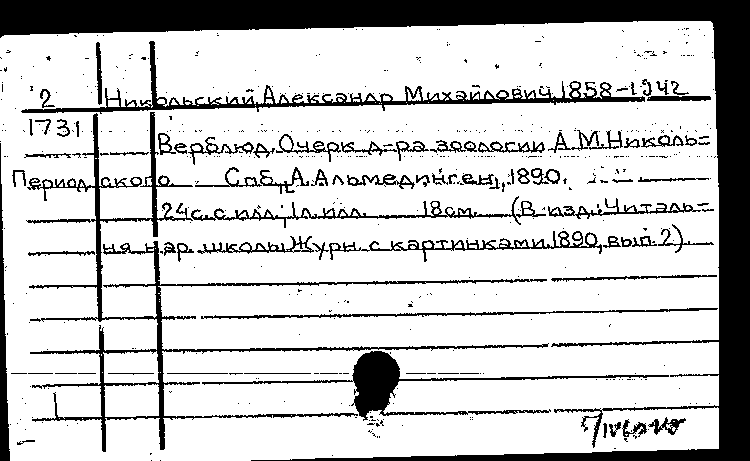 2 Никольский, Александр Михайлович, 1858-1942
1731
Верблюд. Очерк д-ра зоологии А.М.Николь=
Период. ского. Спб, "А.Альмединген", 1890.
24с. с илл.; 1л. илл. 18см. (В изд.: Читаль=
ня нар. школы. Журн. с картинками. 1890, вып. 2).